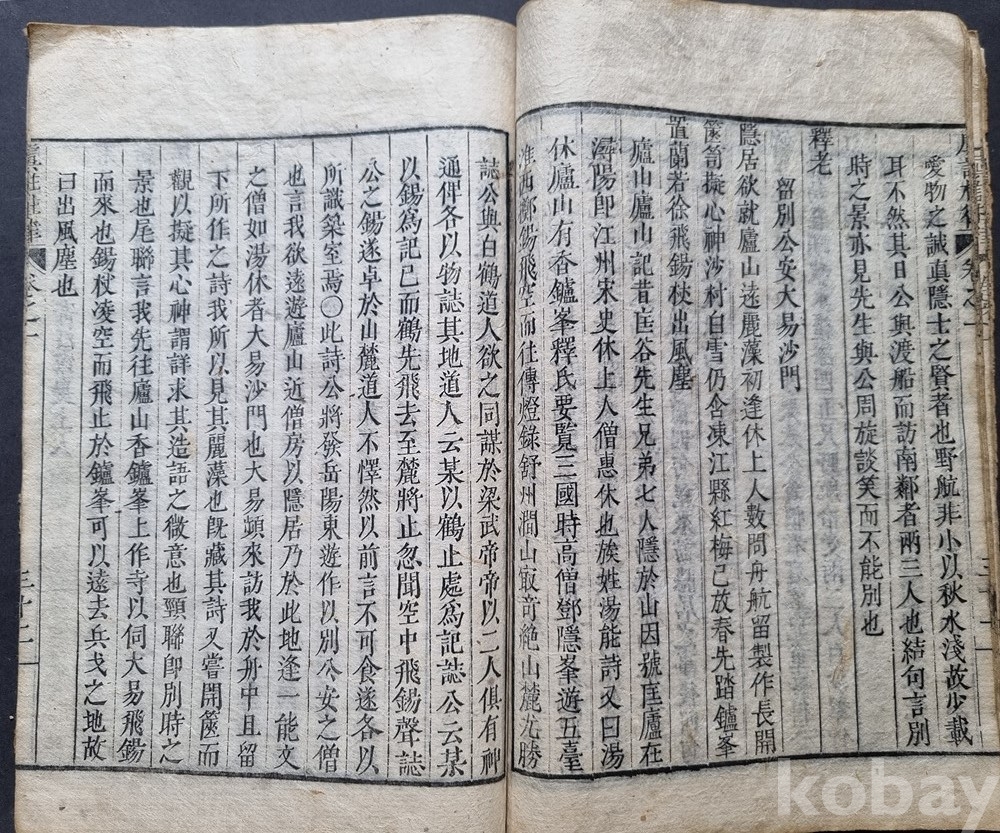 愛物之誠眞隱士之賢者也野航非小以秋水淺故少載
耳不然其日公與渡船而訪南鄰者兩三人也結句言別
時之景亦見先生與公周旋談笑而不能別也
釋老
留別公安大易沙門
隱居欲就廬山遠麗藻初逢休上人數問舟航留製作長開
篋笥擬心神沙村白雪仍含凍江縣紅梅已放春先踏鑪峯
置蘭若徐飛錫杖出風塵
廬山廬山記昔匡谷先生兄弟七人隱於山因號匡廬在
潯陽卽江州宋史休上人僧惠休也族姓湯能詩又曰湯
休廬山有香鑪峯釋氏要覽三國時高僧鄧隱峯遊五臺
淮西擲錫飛空而往傳燈錄舒州灊山㝡竒絶山麓尤勝
誌公與白鶴道人欲之同謀於梁武帝帝以二人俱有神
通俾各以物誌其地道人云某以鶴止處爲記誌公云某
以錫爲記已而鶴先飛去至麓將止忽聞空中飛錫聲誌
公之錫遂卓於山麓道人不懌然以前言不可食遂各以
所識築室焉〇此詩公將發岳陽東遊作以別公安之僧
也言我欲遠遊廬山近僧房以隱居乃於此地逢一能文
之僧如湯休者大易沙門也大易頻來訪我於舟中且留
下所作之詩我所以見其麗藻也旣藏其詩又嘗開篋而
觀以擬其心神謂詳求其造語之微意也頸聯卽別時之
景也尾聯言我先往廬山香鑪峯上作寺以伺大易飛錫
而來也錫杖凌空而飛止於鑪峯可以遠去兵戈之地故
曰出風塵也
卷之一
三十二
kobay